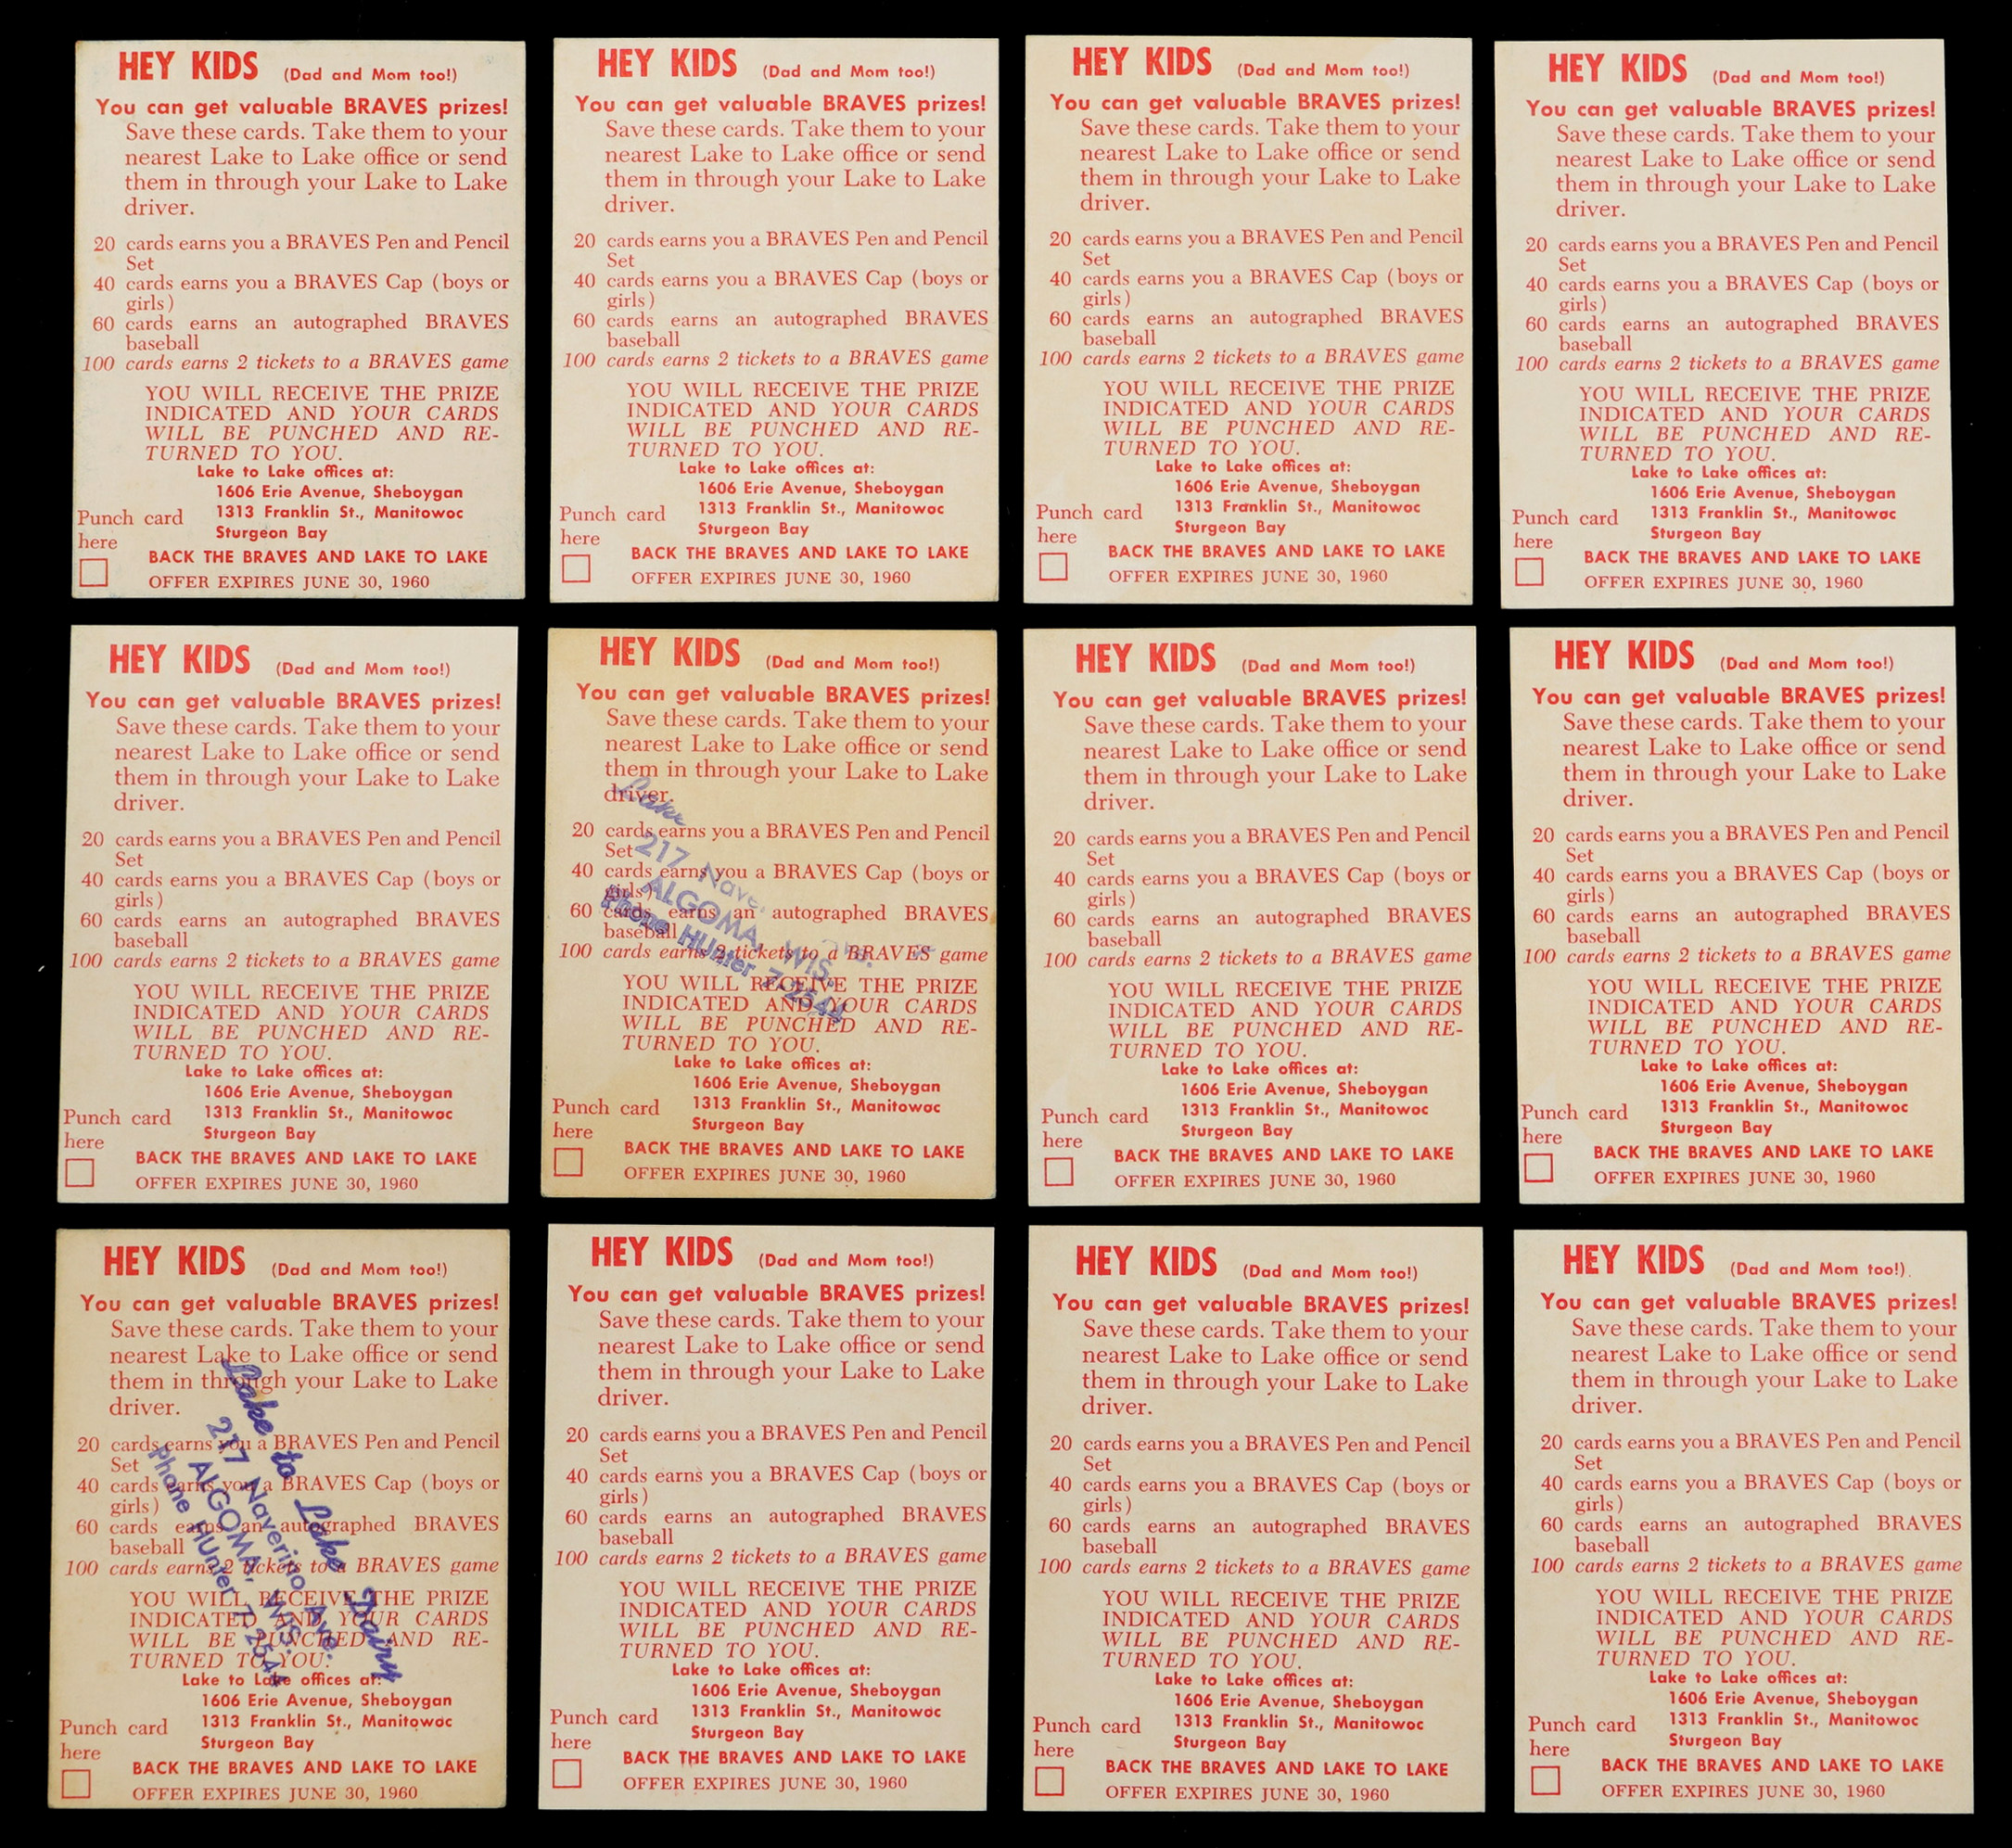 HEY KIDS (Dad and Mom too!)
You can get valuable BRAVES prizes!
Save these cards. Take them to your
nearest Lake to Lake office or send
them in through your Lake to Lake
driver.
20 cards earns you a BRAVES Pen and Pencil
Set
40 cards earns you a BRAVES Cap (boys or
girls)
60 cards earns an autographed BRAVES
baseball
100 cards earns 2 tickets to a BRAVES game
YOU WILL RECEIVE THE PRIZE
INDICATED AND YOUR CARDS
WILL BE PUNCHED AND RE-
TURNED TO YOU.
Lake to Lake offices at:
1606 Erie Avenue, Sheboygan
1313 Franklin St., Manitowoc
Sturgeon Bay
Punch card
here
BACK THE BRAVES AND LAKE TO LAKE
OFFER EXPIRES JUNE 30, 1960
HEY KIDS (Dad and Mom too!)
You can get valuable BRAVES prizes!
Save these cards. Take them to your
nearest Lake to Lake office or send
them in through your Lake to Lake
driver.
20 cards earns you a BRAVES Pen and Pencil
Set
40 cards earns you a BRAVES Cap (boys or
girls)
60 cards earns an autographed BRAVES
baseball
100 cards earns 2 tickets to a BRAVES game
YOU WILL RECEIVE THE PRIZE
INDICATED AND YOUR CARDS
WILL BE PUNCHED AND RE-
TURNED TO YOU.
Lake to Lake offices at:
1606 Erie Avenue, Sheboygan
1313 Franklin St., Manitowoc
Sturgeon Bay
Punch card
here
BACK THE BRAVES AND LAKE TO LAKE
OFFER EXPIRES JUNE 30, 1960
HEY KIDS (Dad and Mom too!)
You can get valuable BRAVES prizes!
Save these cards. Take them to your
nearest Lake to Lake office or send
them in through your Lake to Lake
driver.
20 cards earns you a BRAVES Pen and Pencil
Set
40 cards earns you a BRAVES Cap (boys or
girls)
60 cards earns an autographed BRAVES
baseball
100 cards earns 2 tickets to a BRAVES game
YOU WILL RECEIVE THE PRIZE
INDICATED AND YOUR CARDS
WILL BE PUNCHED AND RE-
TURNED TO YOU.
Lake to Lake offices at:
1606 Erie Avenue, Sheboygan
1313 Franklin St., Manitowoc
Sturgeon Bay
Punch card
here
BACK THE BRAVES AND LAKE TO LAKE
OFFER EXPIRES JUNE 30, 1960
HEY KIDS (Dad and Mom too!)
You can get valuable BRAVES prizes!
Save these cards. Take them to your
nearest Lake to Lake office or send
them in through your Lake to Lake
driver.
20 cards earns you a BRAVES Pen and Pencil
Set
40 cards earns you a BRAVES Cap (boys or
girls)
60 cards earns an autographed BRAVES
baseball
100 cards earns 2 tickets to a BRAVES game
YOU WILL RECEIVE THE PRIZE
INDICATED AND YOUR CARDS
WILL BE PUNCHED AND RE-
TURNED TO YOU.
Lake to Lake offices at:
1606 Erie Avenue, Sheboygan
1313 Franklin St., Manitowoc
Sturgeon Bay
Punch card
here
BACK THE BRAVES AND LAKE TO LAKE
OFFER EXPIRES JUNE 30, 1960
HEY KIDS (Dad and Mom too!)
You can get valuable BRAVES prizes!
Save these cards. Take them to your
nearest Lake to Lake office or send
them in through your Lake to Lake
driver.
20 cards earns you a BRAVES Pen and Pencil
Set
40 cards earns you a BRAVES Cap (boys or
girls)
60 cards earns an autographed BRAVES
baseball
100 cards earns 2 tickets to a BRAVES game
YOU WILL RECEIVE THE PRIZE
INDICATED AND YOUR CARDS
WILL BE PUNCHED AND RE-
TURNED TO YOU.
Lake to Lake offices at:
1606 Erie Avenue, Sheboygan
1313 Franklin St., Manitowoc
Sturgeon Bay
Punch card
here
BACK THE BRAVES AND LAKE TO LAKE
OFFER EXPIRES JUNE 30, 1960
HEY KIDS (Dad and Mom too!)
You can get valuable BRAVES prizes!
Save these cards. Take them to your
nearest Lake to Lake office or send
them in through your Lake to Lake
driver.
20 cards earns you a BRAVES Pen and Pencil
Set
40 cards earns you a BRAVES Cap (boys or
girls)
60 cards earns an autographed BRAVES
baseball
100 cards earns 2 tickets to a BRAVES game
YOU WILL RECEIVE THE PRIZE
INDICATED AND YOUR CARDS
WILL BE PUNCHED AND RE-
TURNED TO YOU.
Lake to Lake offices at:
1606 Erie Avenue, Sheboygan
1313 Franklin St., Manitowoc
Sturgeon Bay
Punch card
here
BACK THE BRAVES AND LAKE TO LAKE
OFFER EXPIRES JUNE 30, 1960
Lake
217
ALGOMA, WIS.
Phone HUnter 7-2544
HEY KIDS (Dad and Mom too!)
You can get valuable BRAVES prizes!
Save these cards. Take them to your
nearest Lake to Lake office or send
them in through your Lake to Lake
driver.
20 cards earns you a BRAVES Pen and Pencil
Set
40 cards earns you a BRAVES Cap (boys or
girls)
60 cards earns an autographed BRAVES
baseball
100 cards earns 2 tickets to a BRAVES game
YOU WILL RECEIVE THE PRIZE
INDICATED AND YOUR CARDS
WILL BE PUNCHED AND RE-
TURNED TO YOU.
Lake to Lake offices at:
1606 Erie Avenue, Sheboygan
1313 Franklin St., Manitowoc
Sturgeon Bay
Punch card
here
BACK THE BRAVES AND LAKE TO LAKE
OFFER EXPIRES JUNE 30, 1960
HEY KIDS (Dad and Mom too!)
You can get valuable BRAVES prizes!
Save these cards. Take them to your
nearest Lake to Lake office or send
them in through your Lake to Lake
driver.
20 cards earns you a BRAVES Pen and Pencil
Set
40 cards earns you a BRAVES Cap (boys or
girls)
60 cards earns an autographed BRAVES
baseball
100 cards earns 2 tickets to a BRAVES game
YOU WILL RECEIVE THE PRIZE
INDICATED AND YOUR CARDS
WILL BE PUNCHED AND RE-
TURNED TO YOU.
Lake to Lake offices at:
1606 Erie Avenue, Sheboygan
1313 Franklin St., Manitowoc
Sturgeon Bay
Punch card
here
BACK THE BRAVES AND LAKE TO LAKE
OFFER EXPIRES JUNE 30, 1960
HEY KIDS (Dad and Mom too!)
You can get valuable BRAVES prizes!
Save these cards. Take them to your
nearest Lake to Lake office or send
them in through your Lake to Lake
driver.
20 cards earns you a BRAVES Pen and Pencil
Set
40 cards earns you a BRAVES Cap (boys or
girls)
60 cards earns an autographed BRAVES
baseball
100 cards earns 2 tickets to a BRAVES game
YOU WILL RECEIVE THE PRIZE
INDICATED AND YOUR CARDS
WILL BE PUNCHED AND RE-
TURNED TO YOU.
Lake to Lake offices at:
1606 Erie Avenue, Sheboygan
1313 Franklin St., Manitowoc
Sturgeon Bay
Punch card
here
BACK THE BRAVES AND LAKE TO LAKE
OFFER EXPIRES JUNE 30, 1960
Lake to Lake Dairy
217 Naverino Ave.
ALGOMA, WIS.
Phone HUnter 7-2544
HEY KIDS (Dad and Mom too!)
You can get valuable BRAVES prizes!
Save these cards. Take them to your
nearest Lake to Lake office or send
them in through your Lake to Lake
driver.
20 cards earns you a BRAVES Pen and Pencil
Set
40 cards earns you a BRAVES Cap (boys or
girls)
60 cards earns an autographed BRAVES
baseball
100 cards earns 2 tickets to a BRAVES game
YOU WILL RECEIVE THE PRIZE
INDICATED AND YOUR CARDS
WILL BE PUNCHED AND RE-
TURNED TO YOU.
Lake to Lake offices at:
1606 Erie Avenue, Sheboygan
1313 Franklin St., Manitowoc
Sturgeon Bay
Punch card
here
BACK THE BRAVES AND LAKE TO LAKE
OFFER EXPIRES JUNE 30, 1960
HEY KIDS (Dad and Mom too!)
You can get valuable BRAVES prizes!
Save these cards. Take them to your
nearest Lake to Lake office or send
them in through your Lake to Lake
driver.
20 cards earns you a BRAVES Pen and Pencil
Set
40 cards earns you a BRAVES Cap (boys or
girls)
60 cards earns an autographed BRAVES
baseball
100 cards earns 2 tickets to a BRAVES game
YOU WILL RECEIVE THE PRIZE
INDICATED AND YOUR CARDS
WILL BE PUNCHED AND RE-
TURNED TO YOU.
Lake to Lake offices at:
1606 Erie Avenue, Sheboygan
1313 Franklin St., Manitowoc
Sturgeon Bay
Punch card
here
BACK THE BRAVES AND LAKE TO LAKE
OFFER EXPIRES JUNE 30, 1960
HEY KIDS (Dad and Mom too!)
You can get valuable BRAVES prizes!
Save these cards. Take them to your
nearest Lake to Lake office or send
them in through your Lake to Lake
driver.
20 cards earns you a BRAVES Pen and Pencil
Set
40 cards earns you a BRAVES Cap (boys or
girls)
60 cards earns an autographed BRAVES
baseball
100 cards earns 2 tickets to a BRAVES game
YOU WILL RECEIVE THE PRIZE
INDICATED AND YOUR CARDS
WILL BE PUNCHED AND RE-
TURNED TO YOU.
Lake to Lake offices at:
1606 Erie Avenue, Sheboygan
1313 Franklin St., Manitowoc
Sturgeon Bay
Punch card
here
BACK THE BRAVES AND LAKE TO LAKE
OFFER EXPIRES JUNE 30, 1960